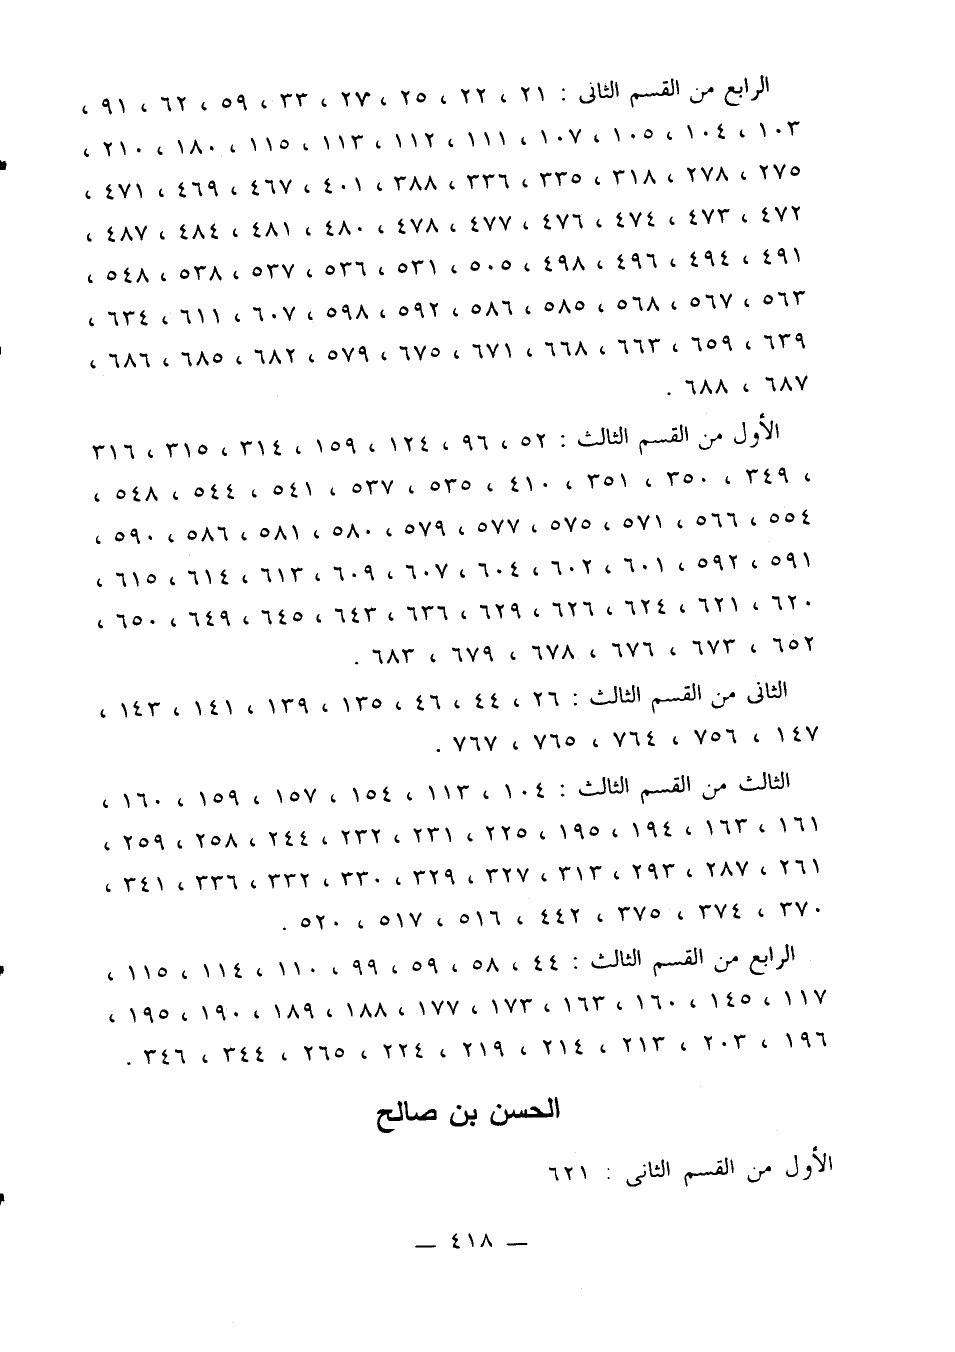 الرابع من القسم الثانى : ٢١ ، ٢٢ ، ٢٥ ، ٢٧ ، ٣٣ ، ٥٩ ، ٦٢ ، ٩١ ،
١٠٣ ، ١٠٤ ، ١٠٥ ، ١٠٧ ، ١١١ ، ١١٢ ، ١١٣ ، ١١٥ ، ١٨٠ ، ٢١٠ ،
٢٧٥ ، ٢٧٨ ، ٣١٨ ، ٣٣٥ ، ٣٣٦ ، ٣٨٨ ، ٤٠١ ، ٤٦٧ ، ٤٦٩ ، ٤٧١ ،
٤٧٢ ، ٤٧٣ ، ٤٧٤ ، ٤٧٦ ، ٤٧٧ ، ٤٧٨ ، ٤٨٠ ، ٤٨١ ، ٤٨٤ ، ٤٨٧ ،
٤٩١ ، ٤٩٤ ، ٤٩٦ ، ٤٩٨ ، ٥٠٥ ، ٥٣١ ، ٥٣٦ ، ٥٣٧ ، ٥٣٨ ، ٥٤٨ ،
٥٦٣ ، ٥٦٧ ، ٥٦٨ ، ٥٨٥ ، ٥٨٦ ، ٥٩٢ ، ٥٩٨ ، ٦٠٧ ، ٦١١ ، ٦٣٤ ،
٦٣٩ ، ٦٥٩ ، ٦٦٣ ، ٦٦٨ ، ٦٧١ ، ٦٧٥ ، ٥٧٩ ، ٦٨٢ ، ٦٨٥ ، ٦٨٦ ،
٦٨٧ ، ٦٨٨ .
الأول من القسم الثالث : ٥٢ ، ٩٦ ، ١٢٤ ، ١٥٩ ، ٣١٤ ، ٣١٥ ، ٣١٦
، ٣٤٩ ، ٣٥٠ ، ٣٥١ ، ٤١٠ ، ٥٣٥ ، ٥٣٧ ، ٥٤١ ، ٥٤٤ ، ٥٤٨ ،
٥٥٤ ، ٥٦٦ ، ٥٧١ ، ٥٧٥ ، ٥٧٧ ، ٥٧٩ ، ٥٨٠ ، ٥٨١ ، ٥٨٦ ، ٥٩٠ ،
٥٩١ ، ٥٩٢ ، ٦٠١ ، ٦٠٢ ، ٦٠٤ ، ٦٠٧ ، ٦٠٩ ، ٦١٣ ، ٦١٤ ، ٦١٥ ،
٦٢٠ ، ٦٢١ ، ٦٢٤ ، ٦٢٦ ، ٦٢٩ ، ٦٣٦ ، ٦٤٣ ، ٦٤٥ ، ٦٤٩ ، ٦٥٠ ،
٦٥٢ ، ٦٧٣ ، ٦٧٦ ، ٦٧٨ ، ٦٧٩ ، ٦٨٣ .
الثانى من القسم الثالث : ٢٦ ، ٤٤ ، ٤٦ ، ١٣٥ ، ١٣٩ ، ١٤١ ، ١٤٣ ،
١٤٧ ، ٧٥٦ ، ٧٦٤ ، ٧٦٥ ، ٧٦٧ .
الثالث من القسم الثالث : ١٠٤ ، ١١٣ ، ١٥٤ ، ١٥٧ ، ١٥٩ ، ١٦٠ ،
١٦١ ، ١٦٣ ، ١٩٤ ، ١٩٥ ، ٢٢٥ ، ٢٣١ ، ٢٣٢ ، ٢٤٤ ، ٢٥٨ ، ٢٥٩ ،
٢٦١ ، ٢٨٧ ، ٢٩٣ ، ٣١٣ ، ٣٢٧ ، ٣٢٩ ، ٣٣٠ ، ٣٣٢ ، ٣٣٦ ، ٣٤١ ،
٣٧٠ ، ٣٧٤ ، ٣٧٥ ، ٤٤٢ ، ٥١٦ ، ٥١٧ ، ٥٢٠ .
الرابع من القسم الثالث : ٤٤ ، ٥٨ ، ٥٩ ، ٩٩ ، ١١٠ ، ١١٤ ، ١١٥ ،
١١٧ ، ١٤٥ ، ١٦٠ ، ١٦٣ ، ١٧٣ ، ١٧٧ ، ١٨٨ ، ١٨٩ ، ١٩٠ ، ١٩٥ ،
١٩٦ ، ٢٠٣ ، ٢١٣ ، ٢١٤ ، ٢١٩ ، ٢٢٤ ، ٢٦٥ ، ٣٤٤ ، ٣٤٦ .
الحسن بن صالح
الأول من القسم الثانى : ٦٢١
— ٤١٨ —